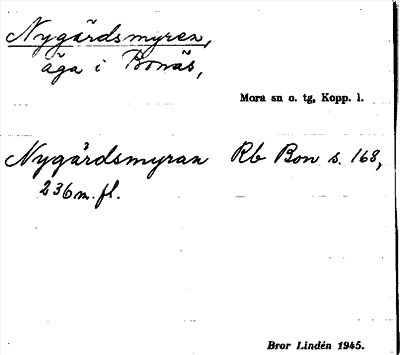 Nygårdsmyren,
äga i Bonäs,
Mora sn o. tg, Kopp. l.
Nygårdsmyran Rb Bon s. 168,
236 m. fl.
Bror Lindén 1945.